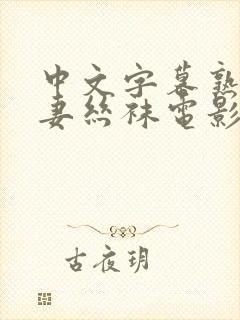 中文字幕熟
妻丝袜电影
古夜玥